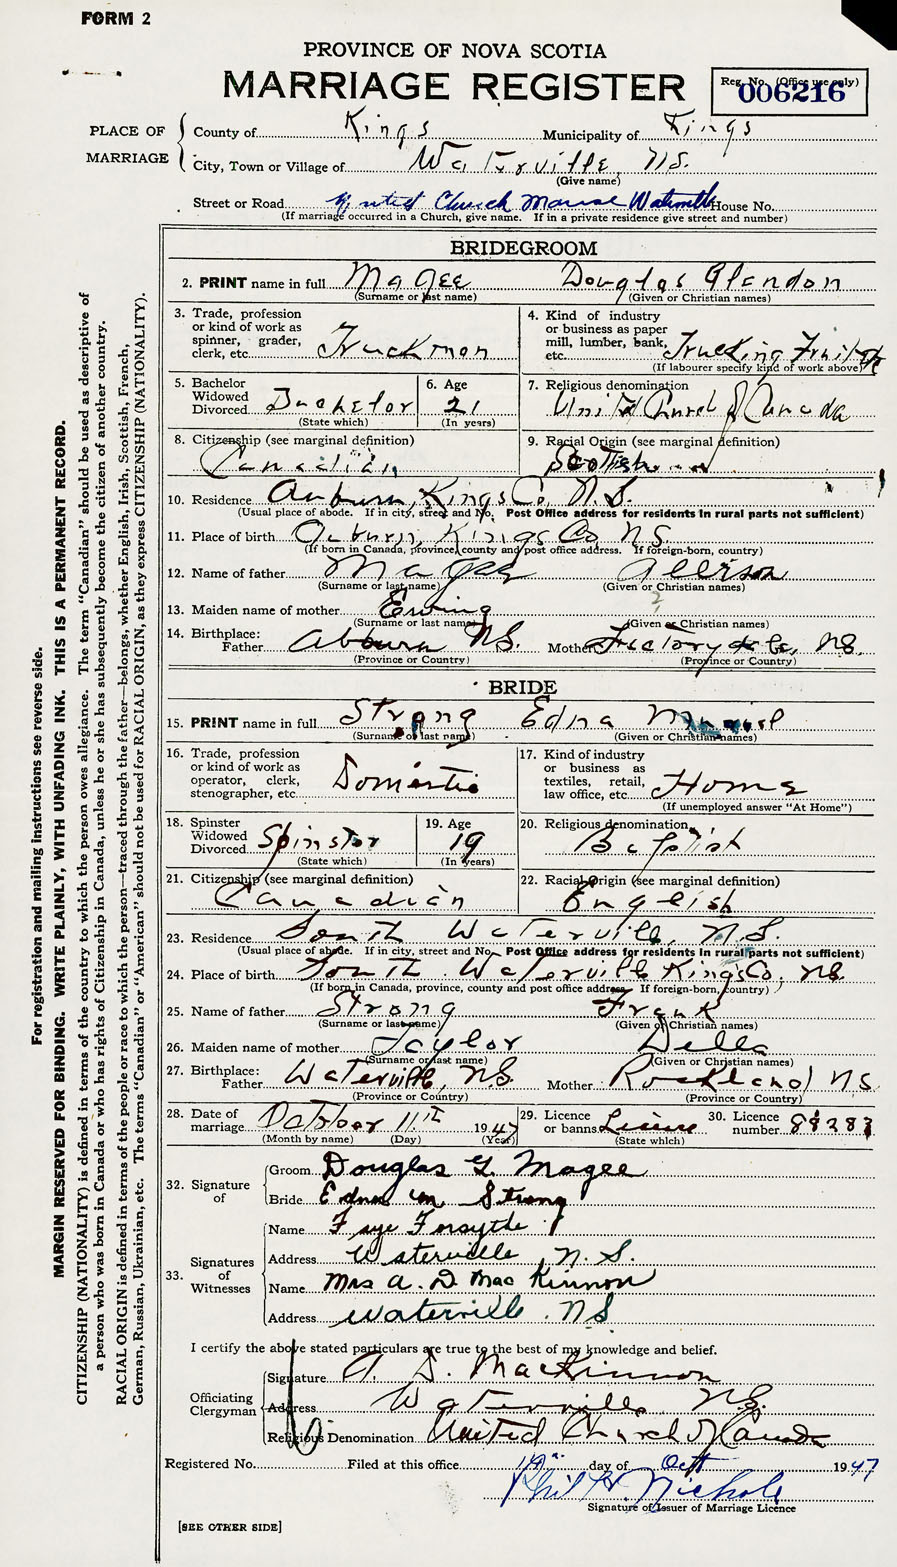 FORM 2
PROVINCE OF NOVA SCOTIA
MARRIAGE REGISTER
Reg. No. (Office use only)
006216
PLACE OF MARRIAGE
County of Kings Municipality of Kings
City, Town or Village of Waterville, N.S.
(Give name)
Street or Road United Church Manse Waterville House No.
(If marriage occurred in a Church, give name. If in a private residence give street and number)
BRIDEGROOM
2. PRINT name in full Magee Douglas Glendon
(Surname or last name) (Given or Christian names)
3. Trade, profession or kind of work as spinner, grader, clerk, etc. Truckman
4. Kind of industry or business as paper mill, lumber, bank, etc. Trucking Fruit
(If labourer specify kind of work above)
5. Bachelor Widowed Divorced Bachelor
(State which)
6. Age 21
(In years)
7. Religious denomination United Church of Canada
8. Citizenship (see marginal definition)
Canadian
9. Racial Origin (see marginal definition)
Scottish
10. Residence Auburn, Kings Co, N.S.
(Usual place of abode. If in city, street and No. Post Office address for residents in rural parts not sufficient)
11. Place of birth Auburn, Kings Co NS
(If born in Canada, province, county and post office address. If foreign-born, country)
12. Name of father Magee Allison
(Surname or last name) (Given or Christian names)
13. Maiden name of mother Ewing
(Surname or last name) (Given or Christian names)
14. Birthplace:
Father Auburn NS. Mother Factorydale, NS.
(Province or Country) (Province or Country)
BRIDE
15. PRINT name in full Strong Edna
(Surname or last name) (Given or Christian names)
16. Trade, profession or kind of work as operator, clerk, stenographer, etc. Domestic
17. Kind of industry or business as textiles, retail, law office, etc. Home
(If unemployed answer "At Home")
18. Spinster Widowed Divorced Spinster
(State which)
19. Age 19
(In years)
20. Religious denomination
Baptist
21. Citizenship (see marginal definition)
Canadian
22. Racial Origin (see marginal definition)
English
23. Residence South Waterville, N.S.
(Usual place of abode. If in city, street and No. Post Office address for residents in rural parts not sufficient)
24. Place of birth South Waterville Kings Co, NS
(If born in Canada, province, county and post office address. If foreign-born, country)
25. Name of father Strong Frank
(Surname or last name) (Given or Christian names)
26. Maiden name of mother Taylor Della
(Surname or last name) (Given or Christian names)
27. Birthplace:
Father Waterville, N.S. Mother Rockland NS
(Province or Country) (Province or Country)
28. Date of marriage October 11th 1947
(Month by name) (Day) (Year)
29. Licence or banns License
(State which)
30. Licence number 88283
32. Signature of
Groom Douglas G. Magee
Bride Edna M. Strong
33. Signatures of Witnesses
Name Faye Forsythe
Address Waterville, N.S.
Name Mrs A. D. MacKinnon
Address Waterville NS
I certify the above stated particulars are true to the best of my knowledge and belief.
Officiating Clergyman
Signature A. D. MacKinnon
Address Waterville NS.
Religious Denomination United Church of Canada
Registered No. Filed at this office day of Oct 1947
Phil H. Nichols
Signature of Issuer of Marriage Licence
[SEE OTHER SIDE]
For registration and mailing instructions see reverse side.
MARGIN RESERVED FOR BINDING. WRITE PLAINLY, WITH UNFADING INK. THIS IS A PERMANENT RECORD.
CITIZENSHIP (NATIONALITY) is defined in terms of the country to which the person owes allegiance. The term "Canadian" should be used as descriptive of
a person who was born in Canada or who has rights of Citizenship in Canada, unless he or she has subsequently become the citizen of another country.
RACIAL ORIGIN is defined in terms of the people or race to which the person—traced through the father—belongs, whether English, Irish, Scottish, French,
German, Russian, Ukrainian, etc. The terms "Canadian" or "American" should not be used for RACIAL ORIGIN, as they express CITIZENSHIP (NATIONALITY).